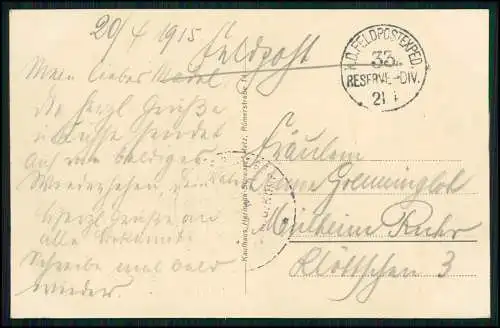 20/4 1915
Feldpost
K.D. FELDPOSTEXPED.
33.
RESERVE-DIV.
21
Mein lieber
die herzl Grüße
u Küsse sendet
auf ein baldiges
Wiedersehen, dein
Herzl Grüße an
alle Bekannte
Schreibe mal bald
wieder.
Kaufhaus Metz, Römerstrasse
Fräulein
Mülheim Ruhr
Klöttschen 3